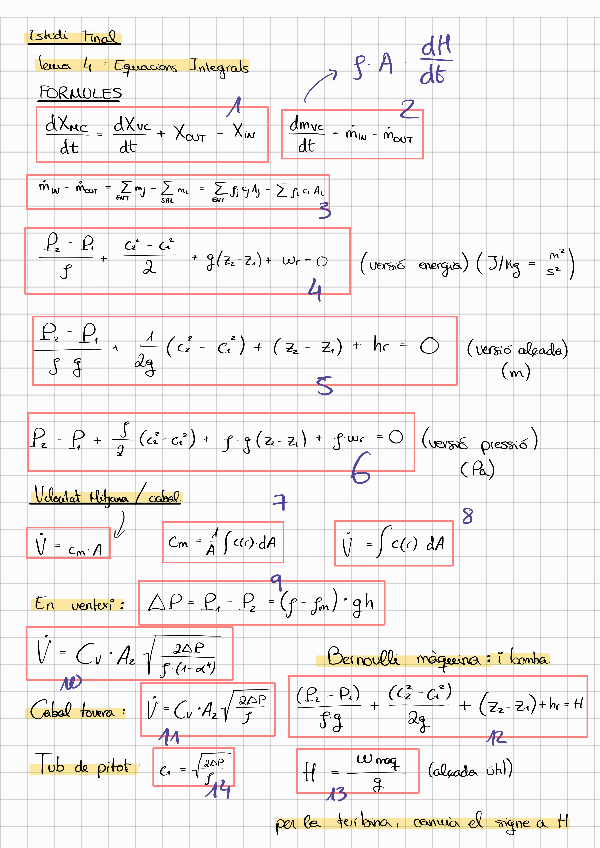 Estudi Final
Tema 4: Equacions Integrals
ρ · A · dH/dt
FÓRMULES
1
2
dX_MC/dt = dX_VC/dt + X_OUT - X_IN
dm_VC/dt = ṁ_IN - ṁ_OUT
ṁ_IN - ṁ_OUT = Σ_ENT ṁ_j - Σ_SAL ṁ_i = Σ_ENT ρ_j c_j A_j - Σ ρ_i c_i A_i
3
(P₂ - P₁)/ρ + (c₂² - c₁²)/2 + g(z₂-z₁) + wr = 0 (versió energia) (J/kg = m²/s²)
4
(P₂ - P₁)/(ρ g) + 1/2g (c₂² - c₁²) + (z₂ - z₁) + hr = 0 (versió alçada)
(m)
5
P₂ - P₁ + ρ/2 (c₂² - c₁²) + ρ·g(z₂-z₁) + ρ·wr = 0 (versió pressió)
(Pa)
6
Velocitat Mitjana / cabal
7
8
V̇ = cm·A
Cm = 1/A ∫c(r)·dA
V̇ = ∫c(r) dA
9
En venturi: ΔP = P₁ - P₂ = (ρ - ρm)·gh
V̇ = Cv·A₂ √(2ΔP/(ρ·(1-α⁴)))
10
Bernoulli màquina: i bomba
Cabal tovera: V̇ = Cv·A₂ √(2ΔP/ρ)
11
(P₂ - P₁)/(ρ·g) + (c₂² - c₁²)/2g + (z₂ - z₁) + hr = H
12
Tub de pitot: c₁ = √(2ΔP/ρ)
14
H = w maq/g (alçada útil)
13
per la turbina, canvia el signe a H